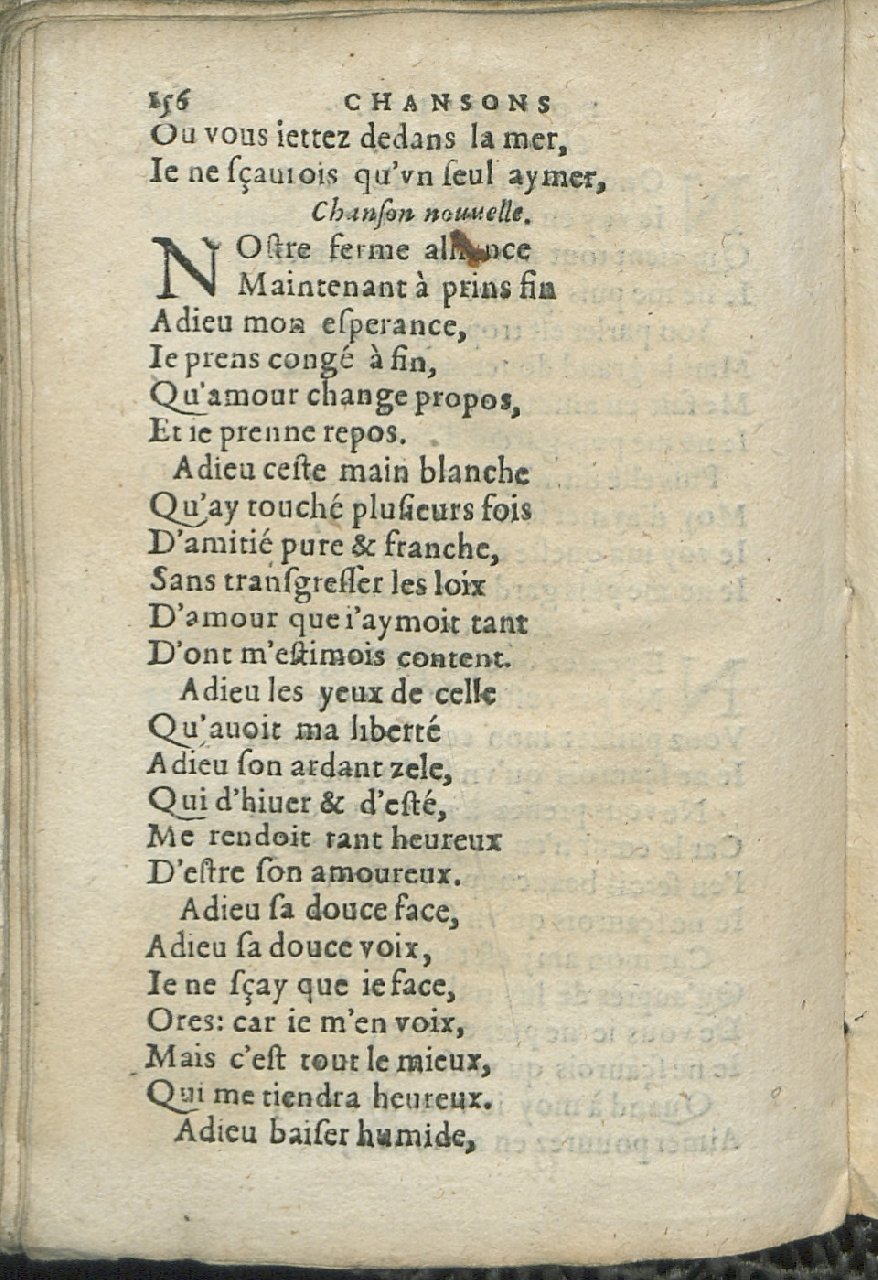 156 CHANSONS
Ou vous iettez dedans la mer,
Ie ne ſçaurois qu'vn ſeul aymer,
Chanſon nouuelle.
NOſtre ferme alliance
Maintenant à prins fin
Adieu mon eſperance,
Ie prens congé à fin,
Qu'amour change propos,
Et ie prenne repos.
Adieu ceſte main blanche
Qu'ay touché pluſieurs fois
D'amitié pure & franche,
Sans tranſgreſſer les loix
D'amour que i'aymoit tant
D'ont m'eſtimois content.
Adieu les yeux de celle
Qu'auoit ma liberté
Adieu ſon ardant zele,
Qui d'hiuer & d'eſté,
Me rendoit tant heureux
D'eſtre ſon amoureux.
Adieu ſa douce face,
Adieu ſa douce voix,
Ie ne ſçay que ie face,
Ores: car ie m'en voix,
Mais c'eſt tout le mieux,
Qui me tiendra heureux.
Adieu baiſer humide,